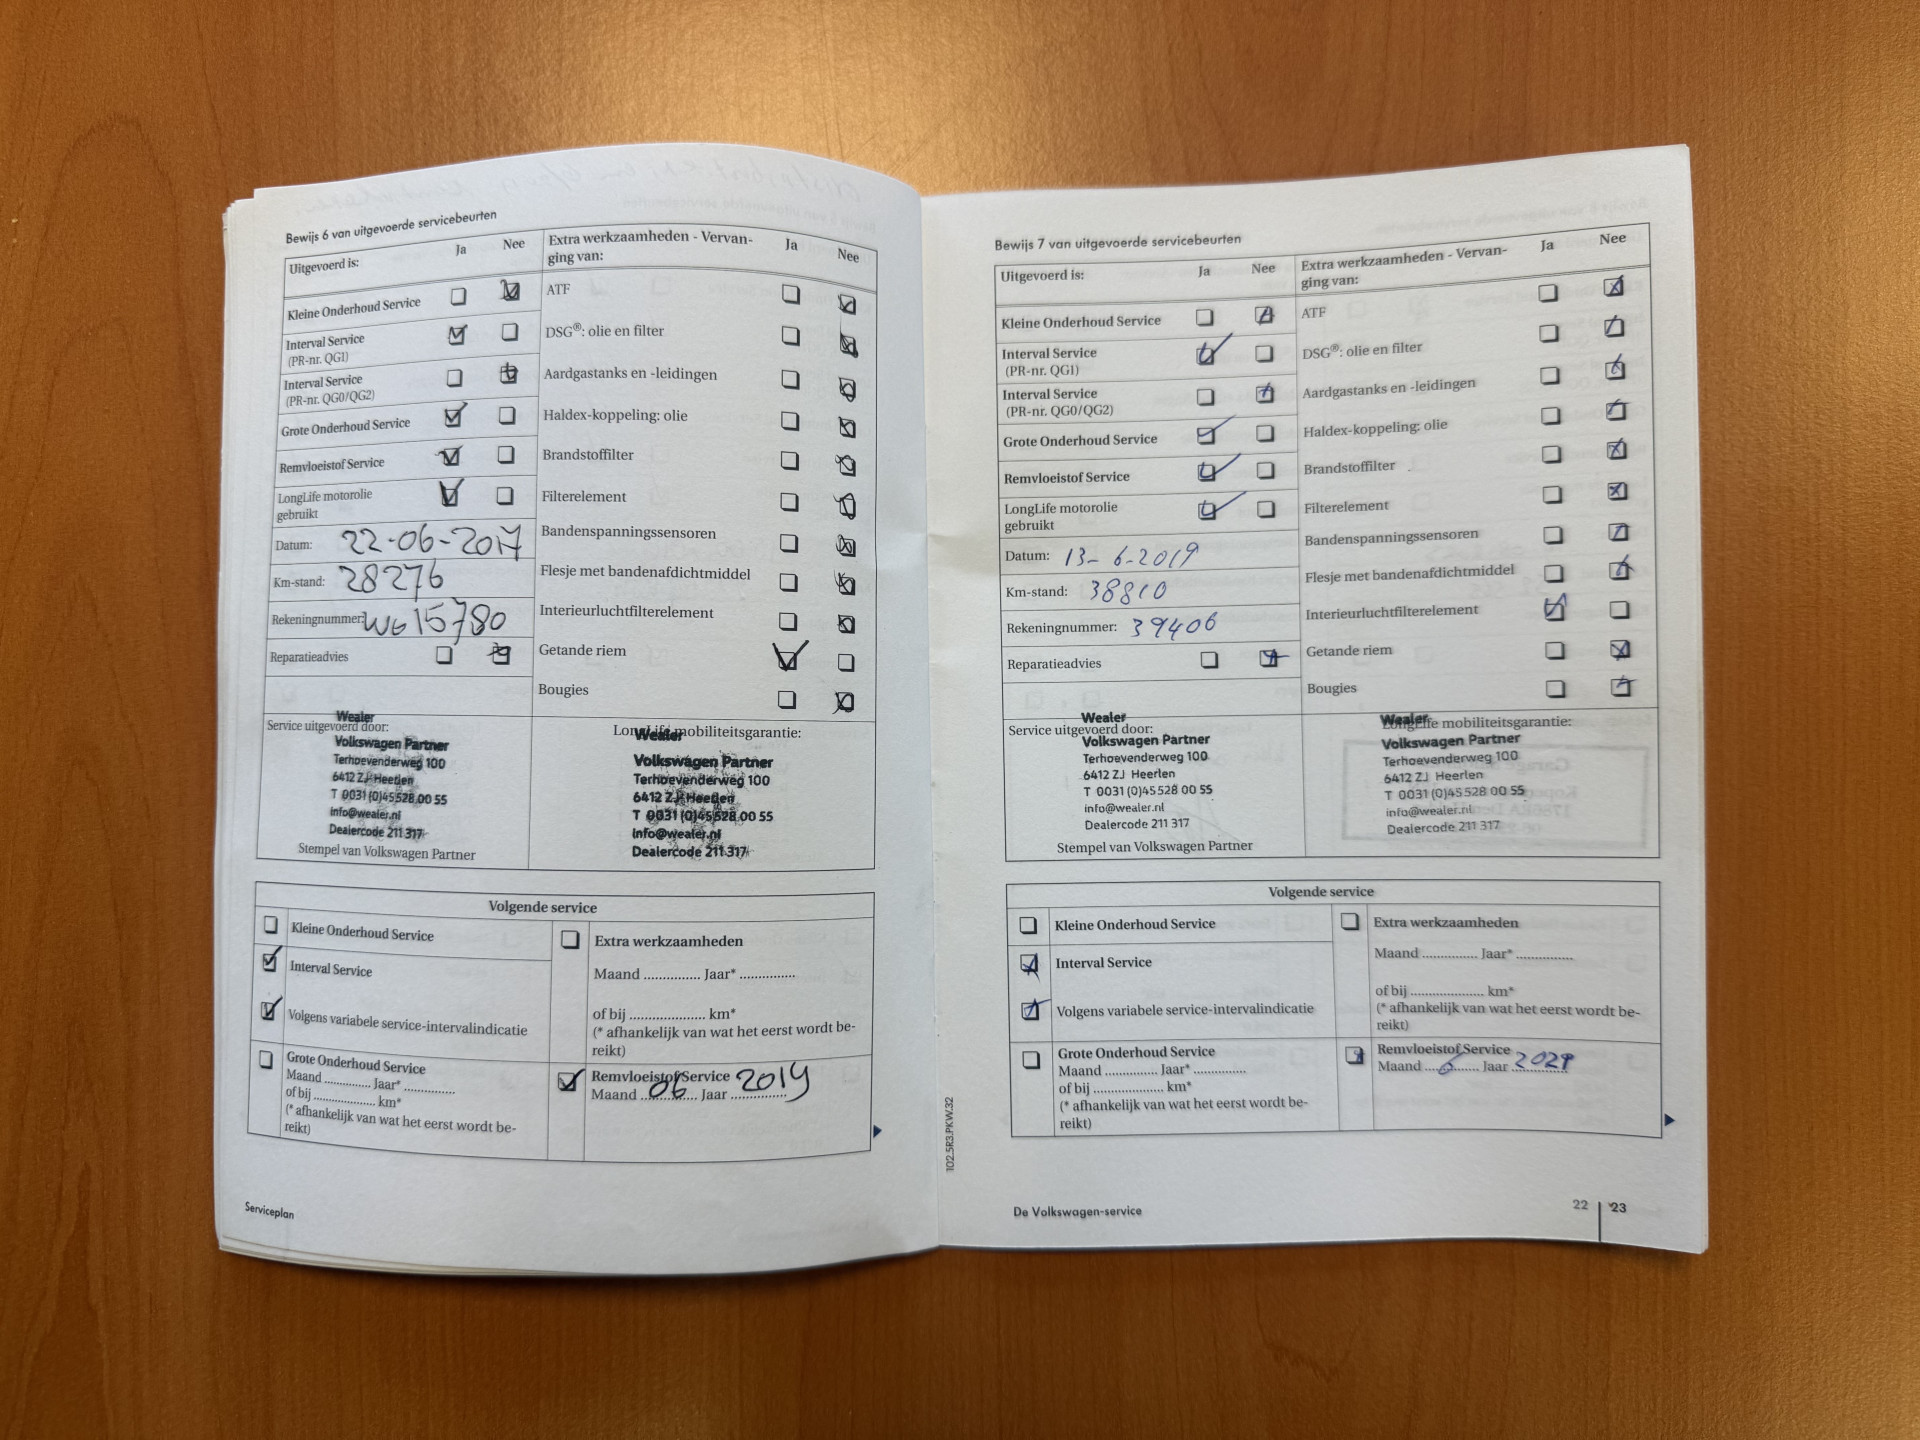 Bewijs 6 van uitgevoerde servicebeurten
Uitgevoerd is: Ja Nee
Kleine Onderhoud Service
Interval Service
(PR-nr. QG1)
Interval Service
(PR-nr. QG0/QG2)
Grote Onderhoud Service
Remvloeistof Service
LongLife motorolie
gebruikt
Datum: 22-06-2017
Km-stand: 28276
Rekeningnummer: W615780
Reparatieadvies
Extra werkzaamheden - Vervan-
ging van: Ja Nee
ATF
DSG®: olie en filter
Aardgastanks en -leidingen
Haldex-koppeling: olie
Brandstoffilter
Filterelement
Bandenspanningssensoren
Flesje met bandenafdichtmiddel
Interieurluchtfilterelement
Getande riem
Bougies
Service uitgevoerd door:
Wealer
Volkswagen Partner
Terhoevenderweg 100
6412 ZJ Heerlen
T 0031 (0)45 528 00 55
info@wealer.nl
Dealercode 211 317
Stempel van Volkswagen Partner
LongLife mobiliteitsgarantie:
Wealer
Volkswagen Partner
Terhoevenderweg 100
6412 ZJ Heerlen
T 0031 (0)45 528 00 55
info@wealer.nl
Dealercode 211 317
Volgende service
Kleine Onderhoud Service
Interval Service
Volgens variabele service-intervalindicatie
Grote Onderhoud Service
Maand ............. Jaar* ..............
of bij ................. km*
(* afhankelijk van wat het eerst wordt be-
reikt)
Extra werkzaamheden
Maand ............... Jaar* ...............
of bij ..................... km*
(* afhankelijk van wat het eerst wordt be-
reikt)
Remvloeistof Service
Maand 06 Jaar 2019
Serviceplan
Bewijs 7 van uitgevoerde servicebeurten
Uitgevoerd is: Ja Nee
Kleine Onderhoud Service
Interval Service
(PR-nr. QG1)
Interval Service
(PR-nr. QG0/QG2)
Grote Onderhoud Service
Remvloeistof Service
LongLife motorolie
gebruikt
Datum: 13-6-2019
Km-stand: 38810
Rekeningnummer: 39406
Reparatieadvies
Extra werkzaamheden - Vervan-
ging van: Ja Nee
ATF
DSG®: olie en filter
Aardgastanks en -leidingen
Haldex-koppeling: olie
Brandstoffilter
Filterelement
Bandenspanningssensoren
Flesje met bandenafdichtmiddel
Interieurluchtfilterelement
Getande riem
Bougies
Service uitgevoerd door:
Wealer
Volkswagen Partner
Terhoevenderweg 100
6412 ZJ Heerlen
T 0031 (0)45 528 00 55
info@wealer.nl
Dealercode 211 317
Stempel van Volkswagen Partner
LongLife mobiliteitsgarantie:
Wealer
Volkswagen Partner
Terhoevenderweg 100
6412 ZJ Heerlen
T 0031 (0)45 528 00 55
info@wealer.nl
Dealercode 211 317
Volgende service
Kleine Onderhoud Service
Interval Service
Volgens variabele service-intervalindicatie
Grote Onderhoud Service
Maand ............. Jaar* ..............
of bij ..................... km*
(* afhankelijk van wat het eerst wordt be-
reikt)
Extra werkzaamheden
Maand ............... Jaar* ...............
of bij ..................... km*
(* afhankelijk van wat het eerst wordt be-
reikt)
Remvloeistof Service
Maand 6 Jaar
102.5R3.PKW.32
De Volkswagen-service
22 23